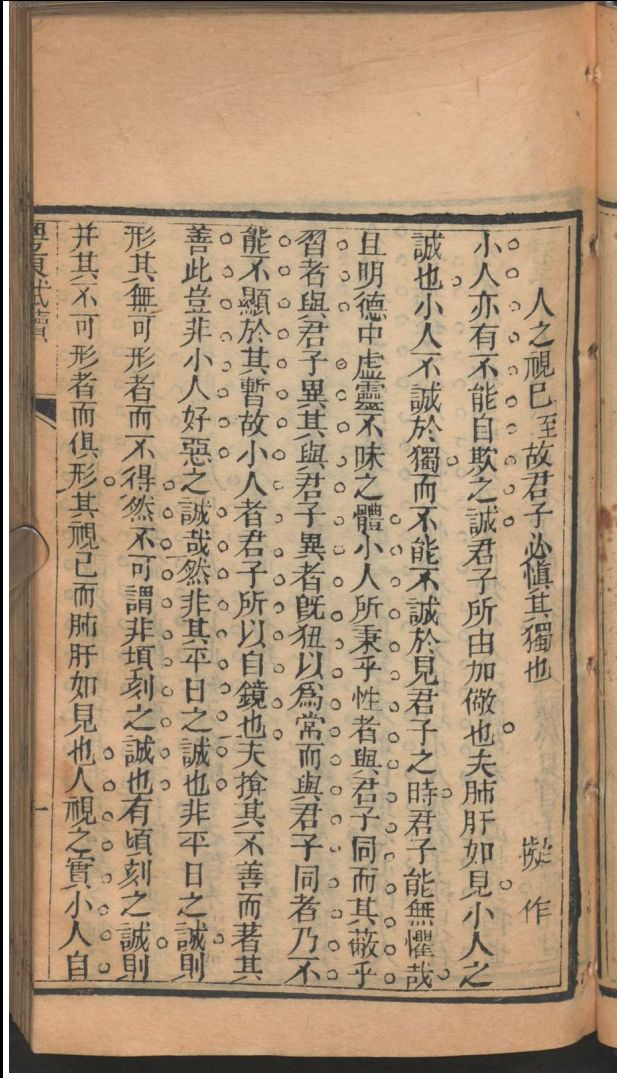 人之視己至故君子必愼其獨也　擬作
小人亦有不能自欺之誠君子所由加儆也夫肺肝如見小人之
誠也小人不誠於獨而不能不誠於見君子之時君子能無懼哉
且明德中虛靈不昧之體小人所秉乎性者與君子同而其蔽乎
習者與君子異其與君子異者旣狃以爲常而與君子同者乃不
能不顯於其暫故小人者君子所以自鏡也夫揜其不善而著其
善此豈非小人好惡之誠哉然非其平日之誠也非平日之誠則
形其無可形者而不得然不可謂非頃刻之誠也有頃刻之誠則
并其不可形者而俱形其視己而肺肝如見也人視之實小人自
粤東試牘
一